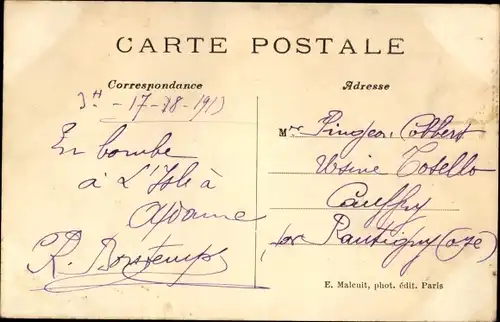 CARTE POSTALE
Correspondance
17-18-1913
En bombe
à L'Isle à
Adame
R. Bonstemps
Adresse
Mr Pingeon Colbert
Usine Tosello
Cauffry
par Rantigny (Oze)
E. Maleuit, phot. édit. Paris